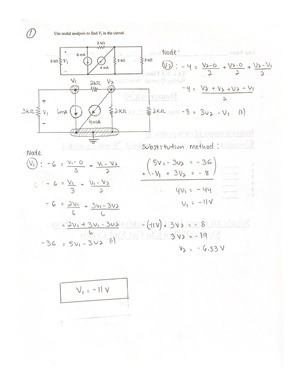 ①
Use nodal analysis to find V₁ in the circuit
2 kΩ
6 mA
3 kΩ
V₁
4 mA
2 kΩ
2 kΩ
V₁ 2kΩ V₂
3kΩ
+
V₁
-
6mA
4mA
2kΩ
2kΩ
Node:
(V₂): -4 = V₂-0/2 + V₂-0/2 + V₂-V₁/2
-4 = V₂ + V₂ + V₂ - V₁/2
-8 = 3V₂ - V₁ (1)
Node
(V₁): -6 = V₁-0/3 + V₁-V₂/2
-6 = V₁/3 + V₁-V₂/2
-6 = 2V₁/6 + 3V₁-3V₂/6
= 2V₁ + 3V₁ - 3V₂/6
-36 = 5V₁ - 3V₂ (1)
Substitution method:
(5V₁ - 3V₂ = -36)
+(-V₁ + 3V₂ = -8)
4V₁ = -44
V₁ = -11V
-(-11V) + 3V₂ = -8
3V₂ = -19
V₂ = -6.33V
V₁ = -11V